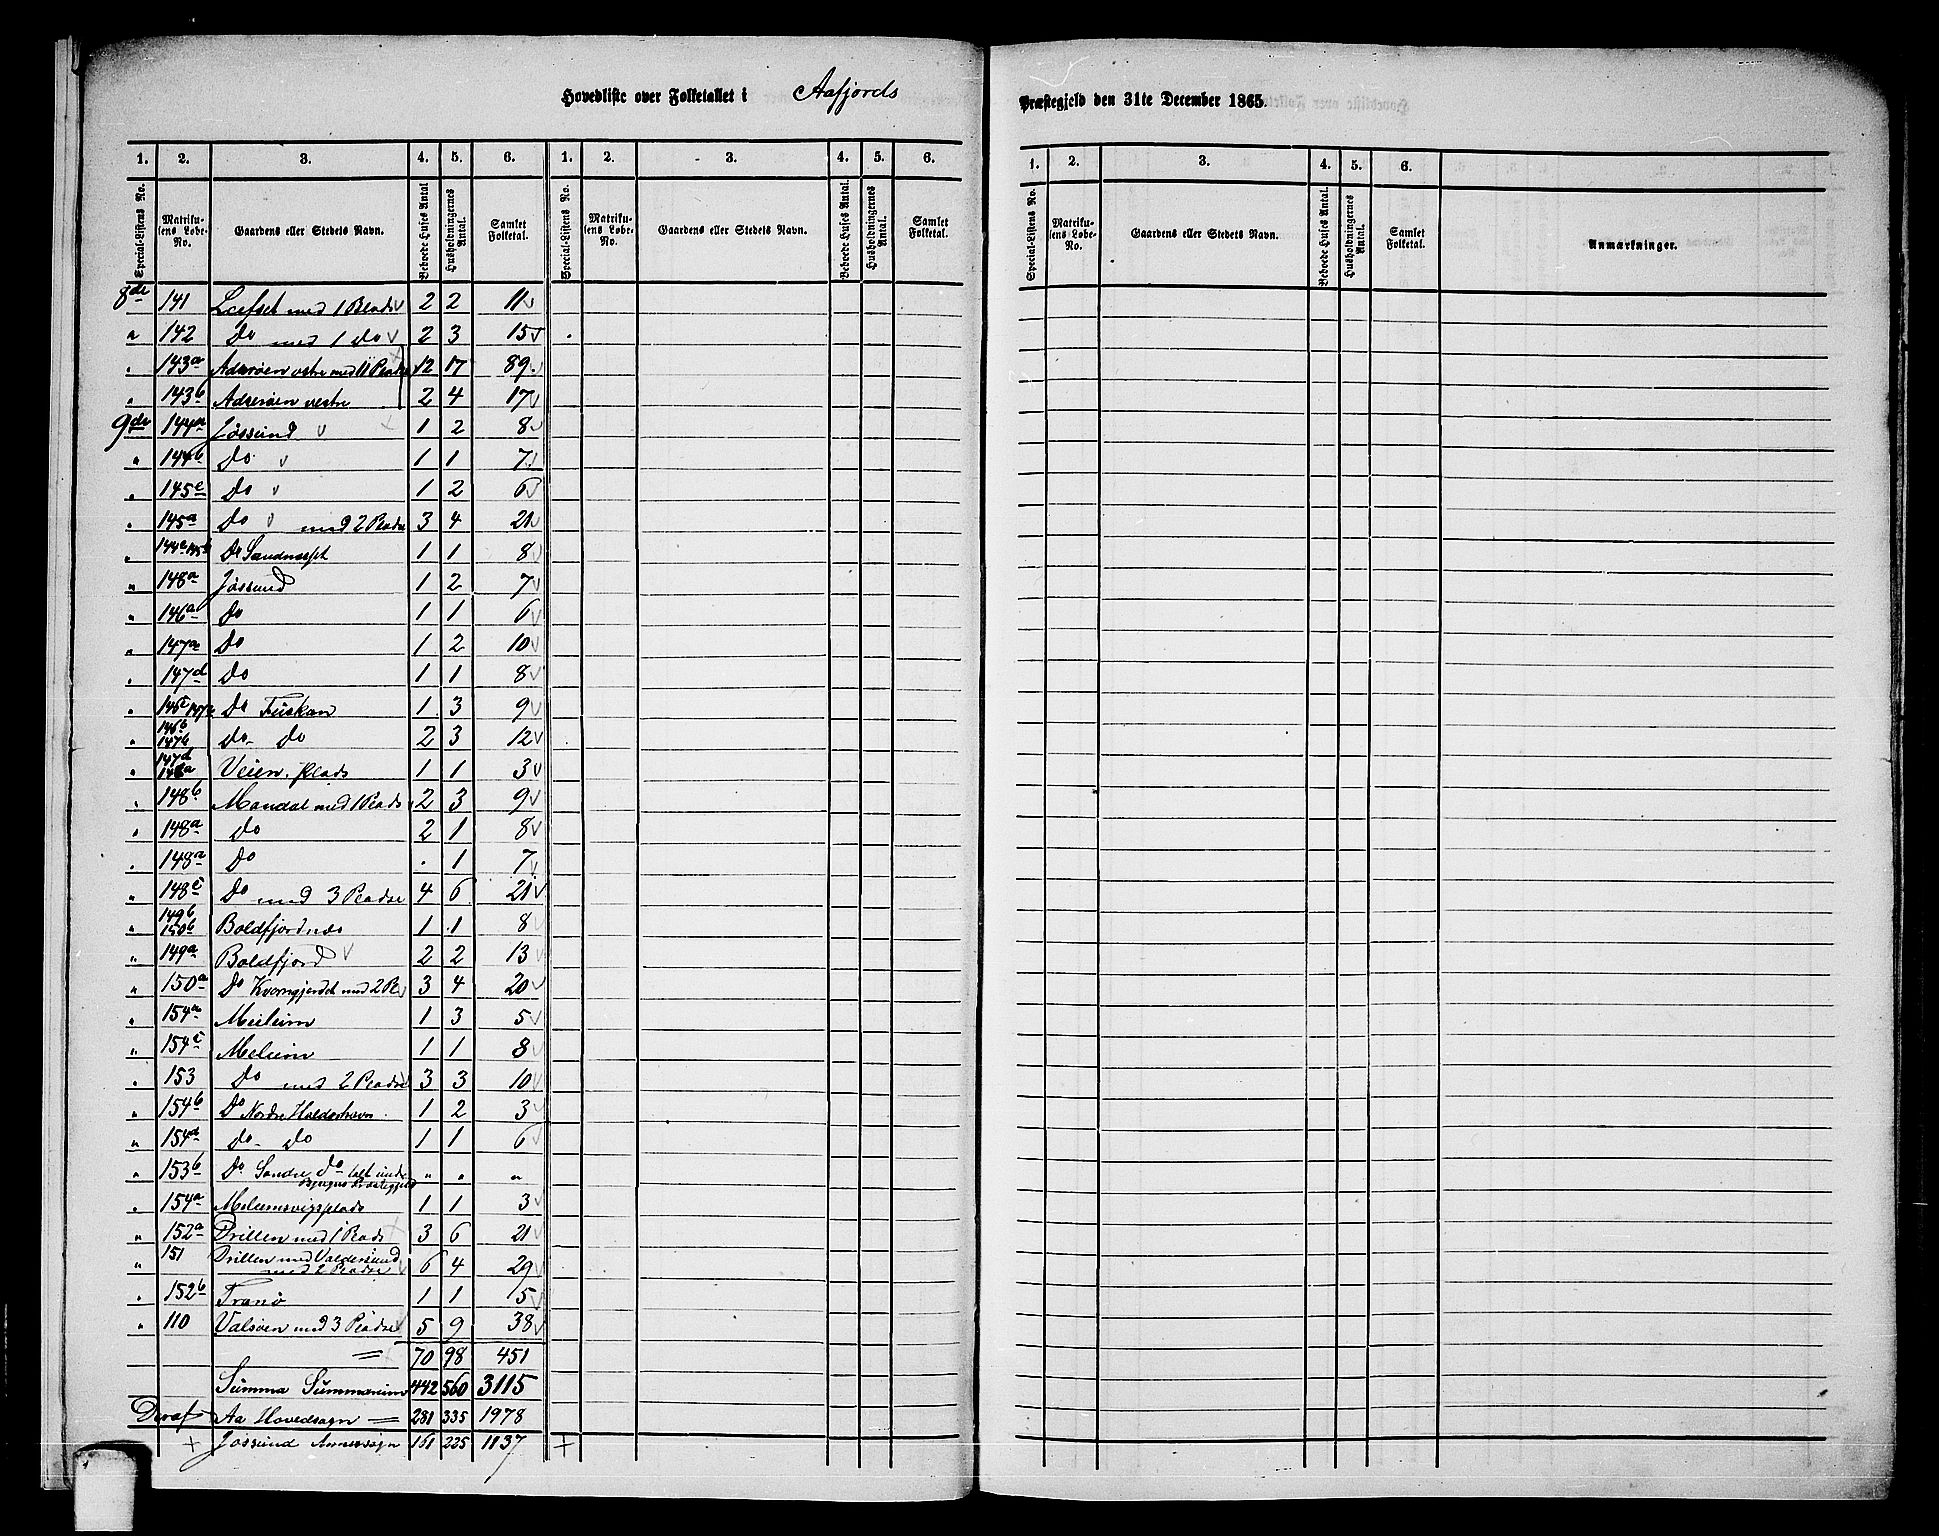 Hovedliste over Folketallet i Aafjords Præstegjeld den 31te December 1865.
1. 2. 3. 4. 5. 6. 1. 2. 3. 4. 5. 6. 1. 2. 3. 4. 5. 6.
Special-Listens No. Matrikulsens Løbe-No. Gaardens eller Stedets Navn. Beboede Huses Antal Husholdningernes Antal. Samlet Folketal. Special-Listens No. Matrikulsens Løbe-No. Gaardens eller Stedets Navn. Beboede Huses Antal. Husholdningernes Antal. Samlet Folketal. Special-Listens No. Matrikulsens Løbe-No. Gaardens eller Stedets Navn. Beboede Huses Antal. Husholdningernes Antal. Samlet Folketal. Anmærkninger.
8de 141 med 1 Plads 2 2 11
" 142 Do med 1 Do 2 3 15
" 143a vestre med 11 Pladse 12 17 89
" 143b vestre 2 4 17
9de 144a Jøssund 1 2 8
" 144b Do 1 1 7
" 145c Do 1 2 6
" 145a Do med 2 Pladse 3 4 21
" 144c 145b Do Sandnesset 1 1 8
" 148a Jøssund 1 2 7
" 146a Do 1 1 6
" 147a Do 1 2 10
" 147d Do 1 1 8
" 146c 147c Do Fuskan 1 3 9
" 146b 147b Do Do 2 3 12
" 147d 148a Veien, Plads 1 1 3
" 148b Mandal med 1 Plads 2 3 9
" 148a Do 2 1 8
" 148a Do . 1 7
" 148c Do med 3 Pladse 4 6 21
" 149b 150b Boldfjordnes 1 1 8
" 149a Boldfjord 2 2 13
" 150a Do Kverngjerdet med 2 Pl 3 4 20
" 154a Meleim 1 3 5
" 154c Meleim 1 1 8
" 153 Do med 2 Pladse 3 3 10
" 154b Do Nordre Haldorshavn 1 2 3
" 154d Do Do 1 1 6
" 153b Do Søndre Do talt under Bjugns Præstegjeld " " "
" 154a Meleimsvigsplads 1 1 3
" 152a Drillen med 1 Plads 3 6 21
" 151 Drillen med Valdersund med 2 Pladse 6 4 29
" 152b Tranø 1 1 5
" 110 Valsøen med 3 Pladse 5 9 38
= 70 98 451
Summa Summarum 442 560 3115
Deraf Aa Hovedsogn = 281 335 1978
+ Jøssund Annexsogn 161 225 1137 +